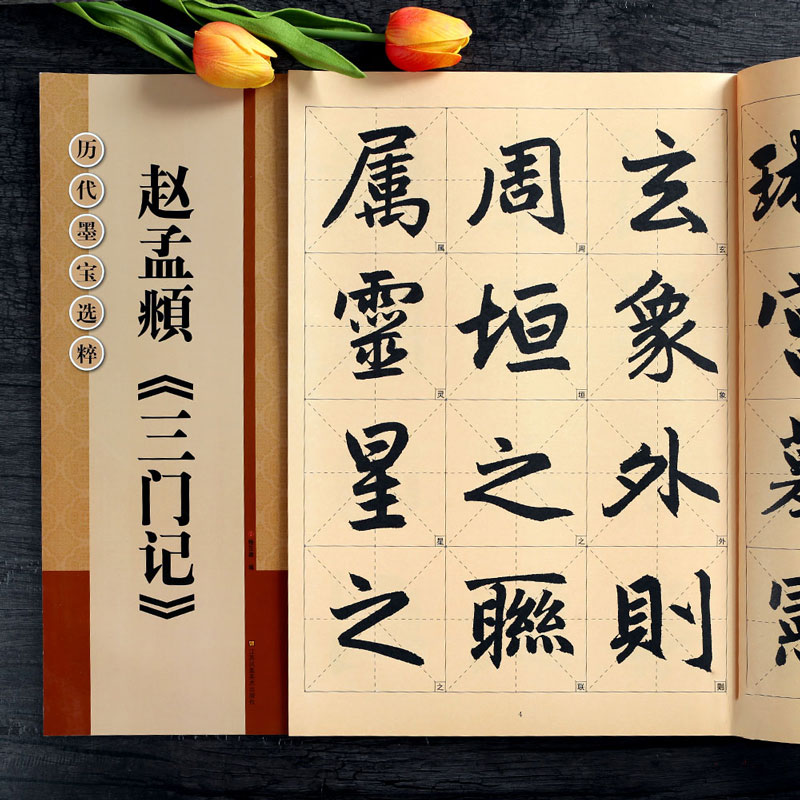 历代墨宝选粹
赵孟頫《三门记》
玄象外則
周垣之聯
属靈星之
玄
象
外
则
周
垣
之
联
属
灵
星
之
4